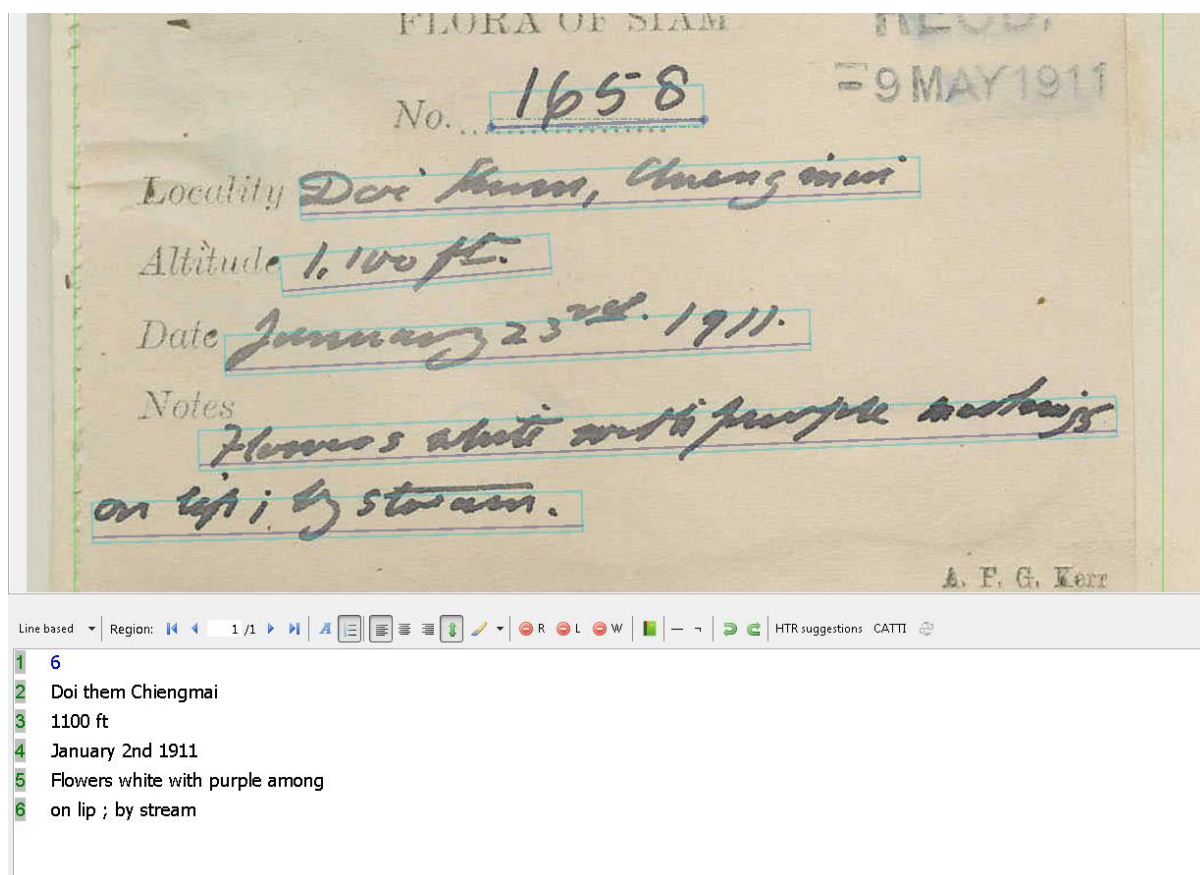 FLORA OF SIAM
RECD.
= 9 MAY 1911
No. 1658
Locality Doi , Chiengmai
Altitude 1,100 ft.
Date January 23rd. 1911.
Notes
Flowers white with purple markings
on lip ; by stream.
A. F. G. Kerr
Line based Region: 1 /1 A R L W HTR suggestions CATTI
1 6
2 Doi them Chiengmai
3 1100 ft
4 January 2nd 1911
5 Flowers white with purple among
6 on lip ; by stream